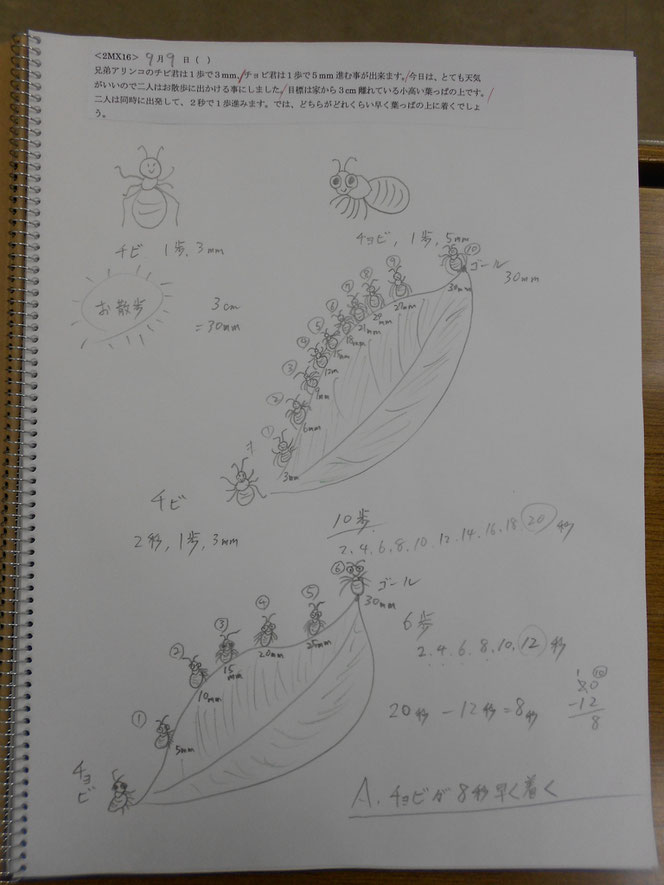 <2MX16> 9月9日( )
兄弟アリンコのチビ君は1歩で3mm、チョビ君は1歩で5mm進む事が出来ます。今日は、とても天気
がいいので二人はお散歩に出かける事にしました。目標は家から3cm離れている小高い葉っぱの上です。
二人は同時に出発して、2秒で1歩進みます。では、どちらがどれくらい早く葉っぱの上に着くでしょ
う。
チビ 1歩、3mm
チョビ、1歩、5mm
お散歩
3cm
=30mm
⑩
ゴール
30mm
30mm
⑨
27mm
⑧
24mm
⑦
21mm
⑥
18mm
⑤
15mm
④
12m
③
9mm
②
6mm
①
3mm
チビ
2秒、1歩、3mm
10歩
2.4.6.8.10.12.14.16.18.20秒
⑥
ゴール
30mm
⑤
25mm
④
20mm
③
15
mm
②
10mm
①
5mm
チョビ
6歩
2.4.6.8.10.12秒
20秒-12秒=8秒
1 10
20
-12
8
A.チョビが8秒早く着く